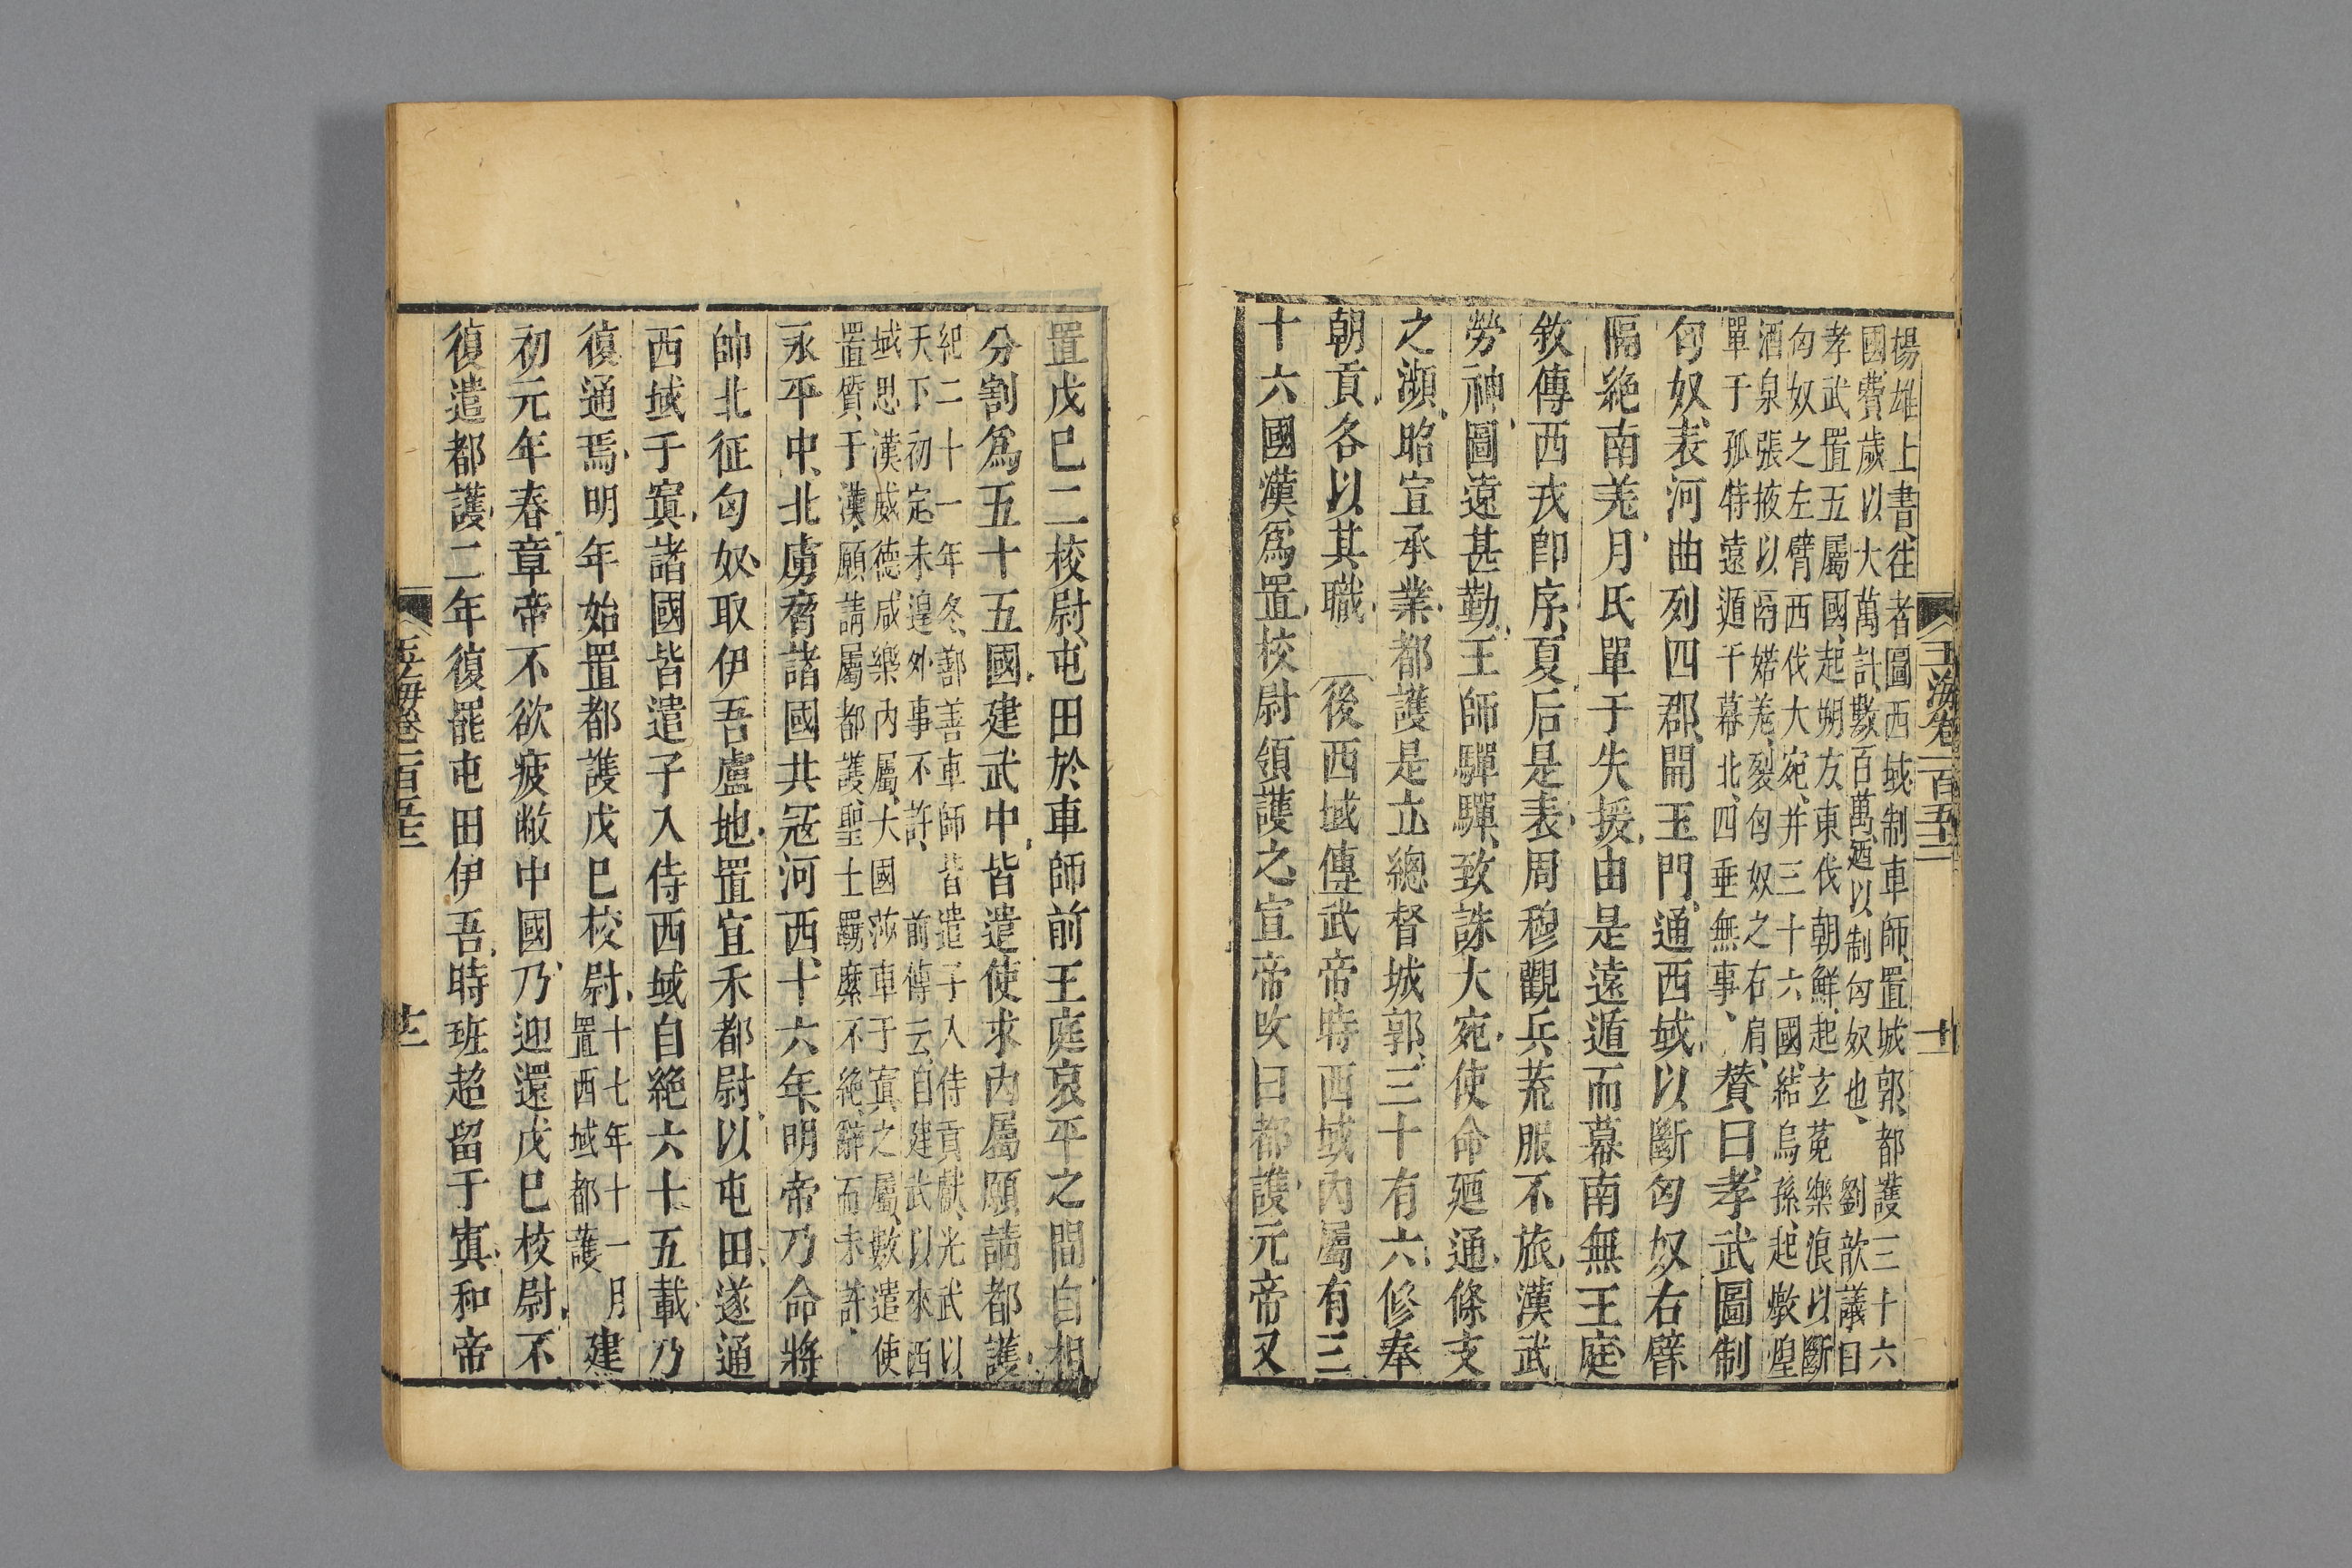 揚雄上書往者圖西域制車師置城郭都護三十六
國費歲以大萬計數百萬廼以制匈奴也劉歆議曰
孝武置五屬國起朔方東伐朝鮮起玄菟樂浪以斷
匈奴之左臂西伐大宛并三十六國結烏孫起燉煌
酒泉張掖以鬲婼羌裂匈奴之右肩
單于孤特遠遁于幕北四垂無事
贊曰孝武圖制
匈奴表河曲列四郡開玉門通西域以斷匈奴右臂
隔絶南羌月氏單于失援由是遠遁而幕南無王庭
敘傳西戎卽序夏后是表周穆觀兵荒服不旅漢武
勞神圖遠甚勤王師驒驒致誅大宛使命廼通條支
之瀕昭宣承業都護是立總督城郭三十有六修奉
朝貢各以其職後西域傳武帝時西域內屬有三
十六國漢爲置校尉領護之宣帝攺曰都護元帝又
玉海卷一百五十二
十一
置戊巳二校尉屯田於車師前王庭哀平之間自相
分割爲五十五國建武中皆遣使求內屬願請都護
紀二十一年冬鄯善車師皆遣子入侍貢獻光武以
天下初定未遑外事不許前傳云自建武以來西
域思漢威德咸樂內屬大國莎車于窴之屬數遣使
置質于漢願請屬都護聖上羈縻不絶辭而未許
永平中北虜脅諸國共寇河西十六年明帝乃命將
帥北征匈奴取伊吾盧地置宜禾都尉以屯田遂通
西域于窴諸國皆遣子入侍西域自絶六十五載乃
復通焉明年始置都護戊巳校尉
十七年十一月
置西域都護
建
初元年春章帝不欲疲敝中國乃迎還戊巳校尉不
復遣都護二年復罷屯田伊吾時班超留于窴和帝
玉海卷一百五十二